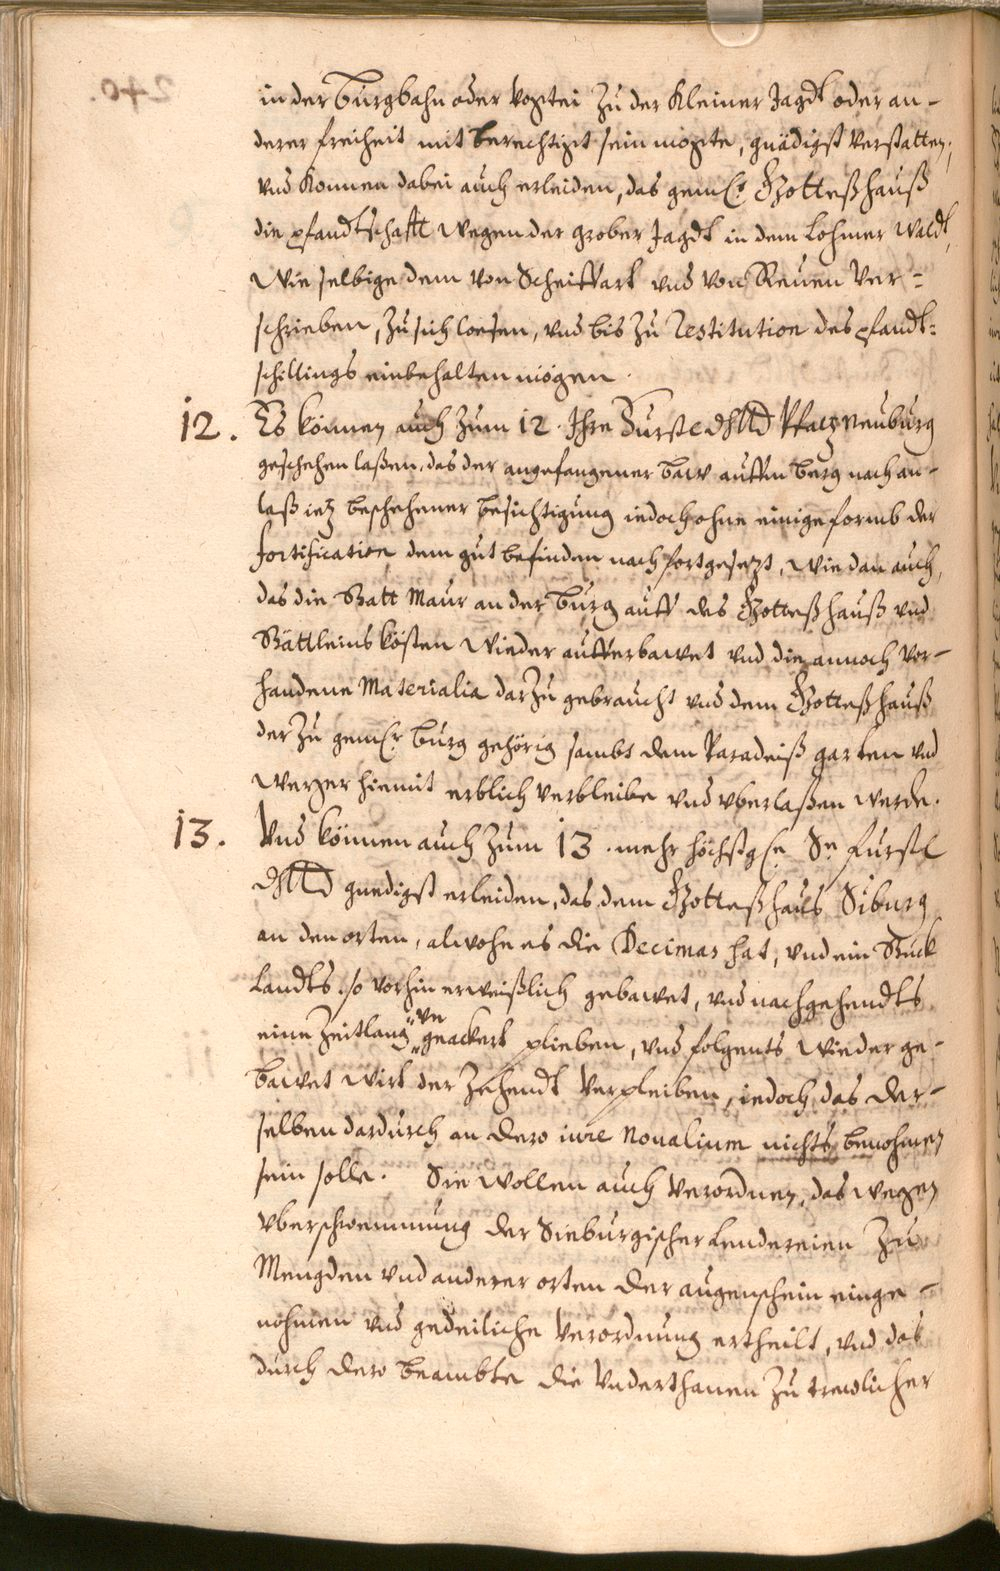 in der Burgbahn oder Vogtei zu der Kleiner Jagdt oder an-
derer freiheit mit berechtigt sein mogte, gnädigst verstatten,
vnd Konnen dabei auch erleiden, das gemlr Gotteßhauß
die pfandtschafft wegen der grober Jagdt in dem Lohmer Waldt,
Wie selbige dem von Scheiffart vnd von Reuen Ver-
schrieben, zu sich loesen, vnd bis zu Restitution des pfandt-
schillings einbehalten mögen.
12. Es können auch zum 12. Ihre Furstl Dhltd Pfaltz Neuburg
geschehen laßen, das der angefangener baw auffm berg nach an-
laß ietz beschehener besichtigung iedoch ohne einige formb der
fortification dem gut befinden nach fortgesetzt, wie dan auch,
das die Statt Maur an der burg auff des Gotteßhauß vnd
Stättleins kösten wieder aufferbawet vnd die annoch vor-
handene Materialia darzu gebraucht vnd dem Gotteßhauß
der zu gemlr burg gehörig sambt dem Paradeiß garten vnd
Weyer hiemit erblich verbleibe vnd vberlaßen werde.
13. Vnd können auch zum 13. mehr höchstgle Se furstl
Dhltd gnedigst erleiden, das dem Gotteßhaus Siburg
an den orten, alwohe es die Decimas hat, vnd ein Stuck
Landts so vorhin erweißlich gebawet, vnd nachgehendts
eine Zeitlang vngeackert plieben, vnd folgents wieder ge-
bawet wirt der Zehendt verpleiben, iedoch das Der-
selben dardurch an Dero iure Noualium nichts benohmen
sein solle. Sie wollen auch verordnen, das wegen
vberschwemmung der Sieburgischer Lendereien zu
Mengden vnd anderer orten der augenschein einge-
nohmen vnd gedeiliche verordnung ertheilt, vnd das
durch Dero beambte die Vnderthanen zu trewlicher